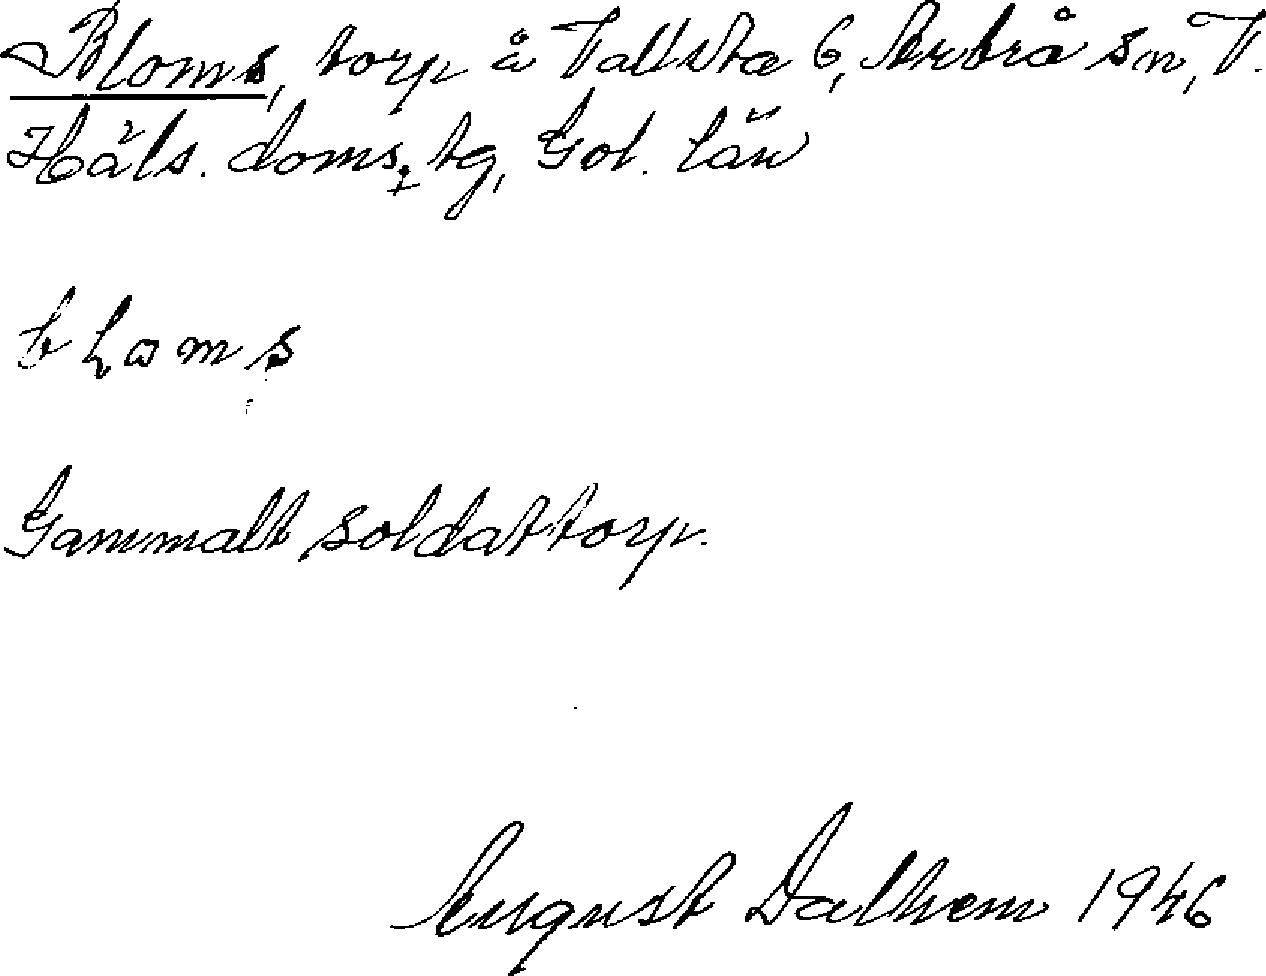 Bloms, torp å Vallsta 6, Arbrå sn, V.
Häls. doms. tg, Gvl. län
bloms
Gammalt soldattorp.
August Dalhem 1946